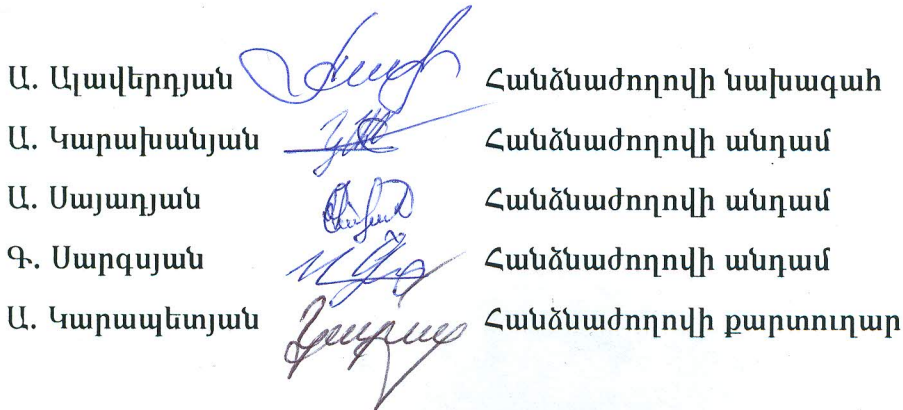 Ա. Ալավերդյան Հանձնաժողովի նախագահ
Ա. Կարախանյան Հանձնաժողովի անդամ
Ա. Սայադյան Հանձնաժողովի անդամ
Գ. Սարգսյան Հանձնաժողովի անդամ
Ա. Կարապետյան Հանձնաժողովի քարտուղար